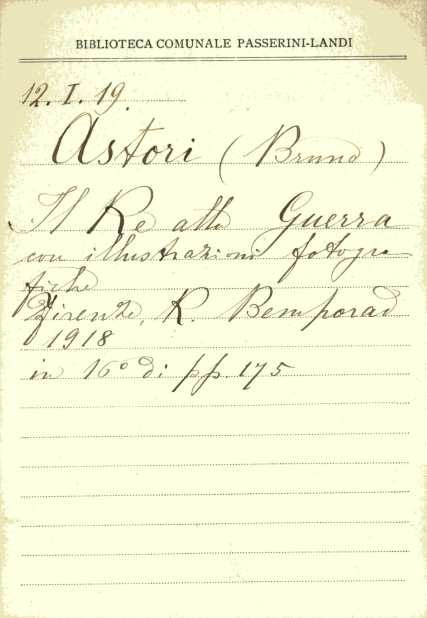 BIBLIOTECA COMUNALE PASSERINI-LANDI
12. I. 19.
Astori (Bruno)
Il Re alla Guerra
con illustrazioni fotogra
fiche
Firenze, R. Bemporad
1918
in 16° di pp. 175